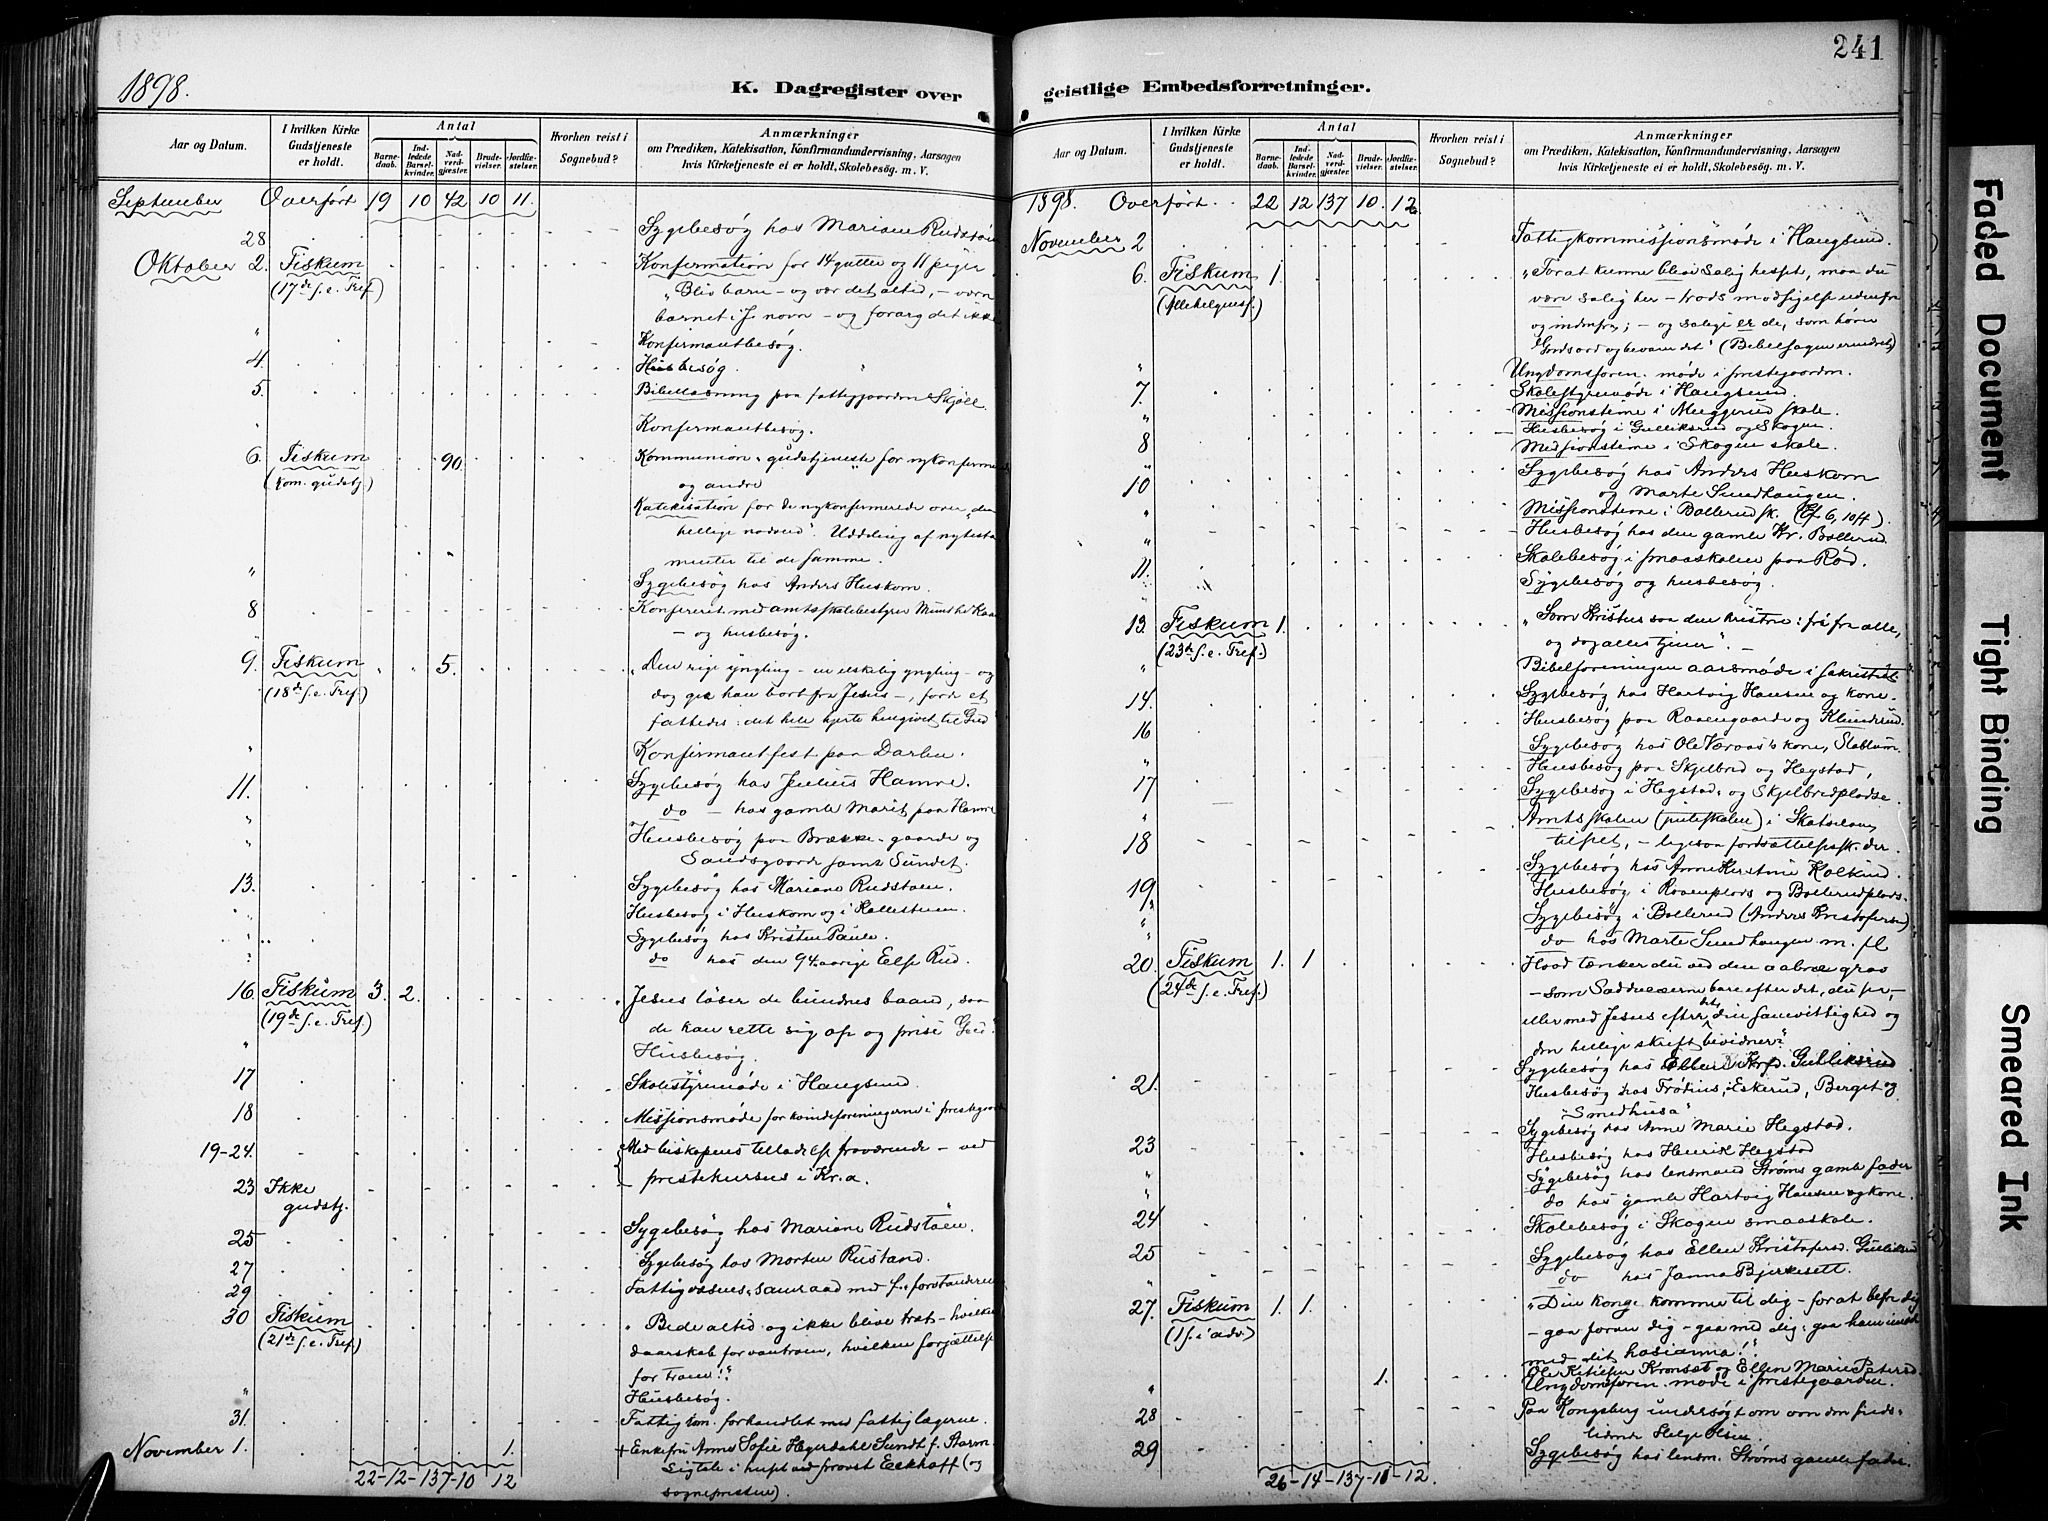 241
1898.
K. Dagregister over
geistlige Embedsforretninger.
Aar og Datum.
I hvilken Kirke Gudstjeneste er holdt.
Antal
Barnedaab.
Indledede Barselkvinder.
Nadverdgjæster.
Brudevielser.
Jordfæstelser.
Hvorhen reist i Sognebud?
Anmærkninger
om Prædiken, Katekisation, Konfirmandundervisning, Aarsagen
hvis Kirketjeneste ei er holdt, Skolebesøg. m. V.
September Overført 19 10 42 10 11.
28 Sygebesøg hos Mariane Rudstøen
Oktober 2. Fiskum Konfirmation for 14 gutter og 11 piger
(17de s. e. Tref.) "Bliv barn – og vær det altid, – værn
barnet i J. navn – og forarg det ikke
" Konfirmantbesøg.
4. Husbesøg.
5. Bibellæsning paa fattiggaarden Skjøll.
" Konfirmantbesøg.
6. Fiskum 90. Kommunion-gudstjeneste for nykonfirmerede
(Kom. gudstj.) og andre
Katekisation for de nykonfirmerede over "den
hellige nadverd". Uddeling af nytesta
menter til de samme.
" Sygebesøg hos Anders Huskom.
8 Konfereret med amtsskolebestyrer Munthe Kaas
– og husbesøg.
9. Fiskum " " 5. "Den rige yngling – en elskelig yngling – og
(18de s. e. Tref.) dog gik han bort fra Jesus –, fordi et
fattedes: det hele hjerte hengivet til Gud"
" Konfirmantfest paa Darbu.
11. Sygebesøg hos Julius Hamre.
do – hos gamle Marit paa Hamre
" Husbesøg paa Brække-gaarde og
" Sandsgaarde samt Sundet.
13. Sygebesøg hos Mariane Rudstøen.
Husbesøg i Huskom og i Kallestuen.
Sygebesøg hos Kristen Paule.
do hos den 94-aarige Else Rud.
16. Fiskum 3. 2. "Jesus løser de bundnes baand, saa
(19de s. e. Tref.) de kan rette sig op og prise Gud."
" Husbesøg.
17 Skolestyremøde i Haugsund.
18 Missionsmøde for kvindeforeningerne i prestegaarden
19-24. Med biskopens tilladelse fraværende – ved
prestekursus i Kr.a.
23 Ikke gudstj.
25 Sygebesøg hos Mariane Rudstøen.
27 Sygebesøg hos Morten Rustand.
29 Fattigvæsens-samraad med f.-forstanderen
30 Fiskum "Bede altid og ikke blive træt – hvilken
(21de s. e. Tref.) daarskab for vantroen, hvilken forjættelse
for troen!"
" Husbesøg.
31. Fattigkom. forhandlet med fattiglægerne.
November 1. 1. + Enkefru Anne Sofie Hegerdahl Sundt f. Starm.
Sigtele i huset ved provst Eckhoff (og
sognepresten).
22-12-137-10 12
1898. Overført. 22 12 137 10. 12
November 2 Fattigkommissionsmøde i Haugsund.
6. Fiskum 1. "For at kunne blive salig hisset, maa du
(Allehelgensf.) være salig her – trods modsigelse udenfra
og indenfra; – og salige er de, som hører
Guds ord og bevarer det" (Bibelsagen erindret)
" Ungdomsforen. møde i prestegaarden.
7. Skolestyremøde i Haugsund.
" Missionstime i Muggerud skole.
Husbesøg i Gulliksrud og Skogen.
8 Missionstime i Skogen skole.
" Sygebesøg hos Anders Huskom
10 og Marte Sundhaugen.
" Missionstime i Bollerud sk. (Ef. 6, 10 ff).
" Husbesøg hos den gamle Kr. Bollerud.
11. Skolebesøg i smaaskolen paa Rød.
" Sygebesøg og husbesøg.
13. Fiskum 1. "Som Kristus saa den kristne: fri fra alle,
(23de s. e. Tref.) og dog alles tjener". –
" Bibelforeningen aarsmøde i sakristiet.
14. Sygebesøg hos Hartvig Hansen og kone.
Husbesøg paa Ravengaarde og Klunderud.
16 Sygebesøg hos Ole Værvas's kone, Stablum.
" Husbesøg paa Skjelbred og Hegstad,
17 Sygebesøg i Hegstad- og Skjelbredpladse.
" Amtsskolen (pigeskolen) i Skatvedt
18 tilset, – ligesaa fortsættelsessk. der.
Sygebesøg hos Anne Kirstine Kolkind.
19 Husbesøg i Ravenplads og Bollerudplads.
" Sygebesøg i Bollerud (Anders Kristofersen)
" do hos Marte Sundhaugen m. fl
20. Fiskum 1. 1 Hvad tænker du ved den aabne grav
(24de s. e. Tref.) – som Sadducæerne bare efter det, du ser, –
eller med Jesus efter det, din samvittighed og
den hellige skrift bevidner?"
Sygebesøg hos Ellen Krf. Gulliksrud
21. Husbesøg hos Frodius, Eskerud, Berget og
"Smedhusa"
Sygebesøg hos Anne Marie Hegstad.
23 Husbesøg hos Henrik Hegstad
" Sygebesøg hos lensmand Strøms gamle fader
" do hos gamle Hartvig Hansen og kone.
24 Skolebesøg i Skogen smaaskole.
25 Sygebesøg hos Ellen Kristofersd. Gulliksrud
" do hos Janna Bjerkesett.
27. Fiskum 1. 1. "Din konge kommer til dig – for at befri dig
(1 s. i adv.) – gaa foran dig – gaa med dig: gaa ham imøde
med dit hosianna!"
1. Ole Kittilsen Kronsæt og Ellen Marie Petersd.
" Ungdomsforen. møde i prestegaarden.
28 Paa Kongsberg undersøgt om den sinds-
lidende Helge Olsen
29 Sygebesøg hos lensm. Strøms gamle fader.
26-14-137-11-12.
Faded Document
Tight Binding
Smeared Ink